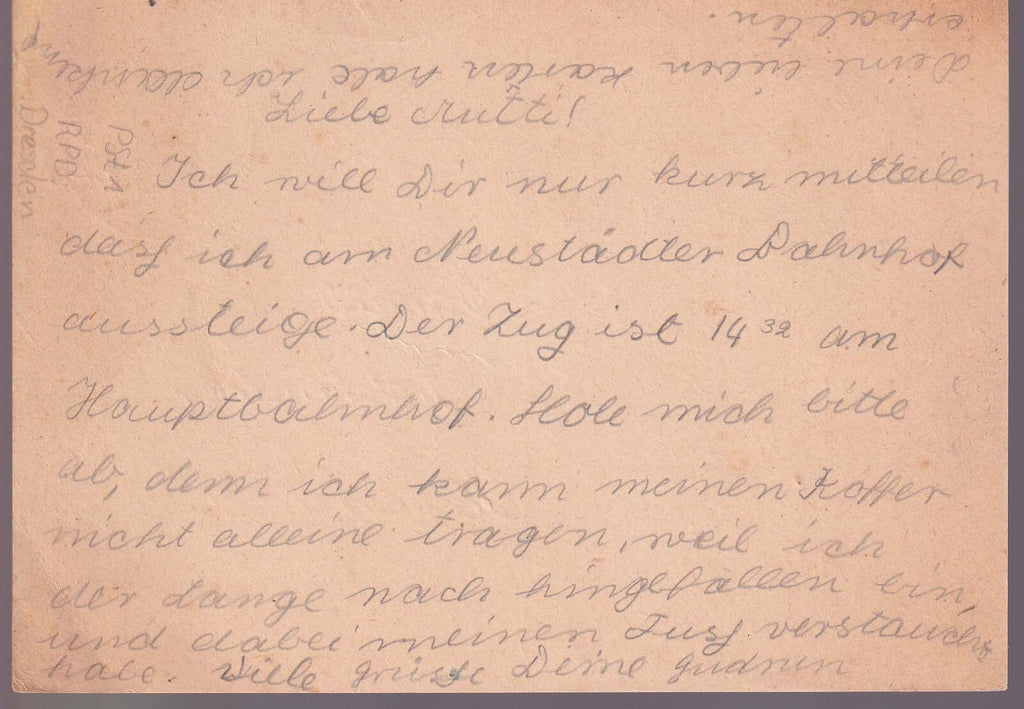 Liebe Mutti!
Ich will Dir nur kurz mitteilen
dasß ich am Neustädter Bahnhof
aussteige. Der Zug ist 14 32 am
Hauptbahnhof. Hole mich bitte
ab, denn ich kann meinen Koffer
nicht alleine tragen, weil ich
der Länge nach hingefallen bin,
und dabei meinen Fuß verstaucht
habe. Viele grüsse Deine Gudrun
Deine lieben Karten habe ich dankend
erhalten.
RPD
Dresden